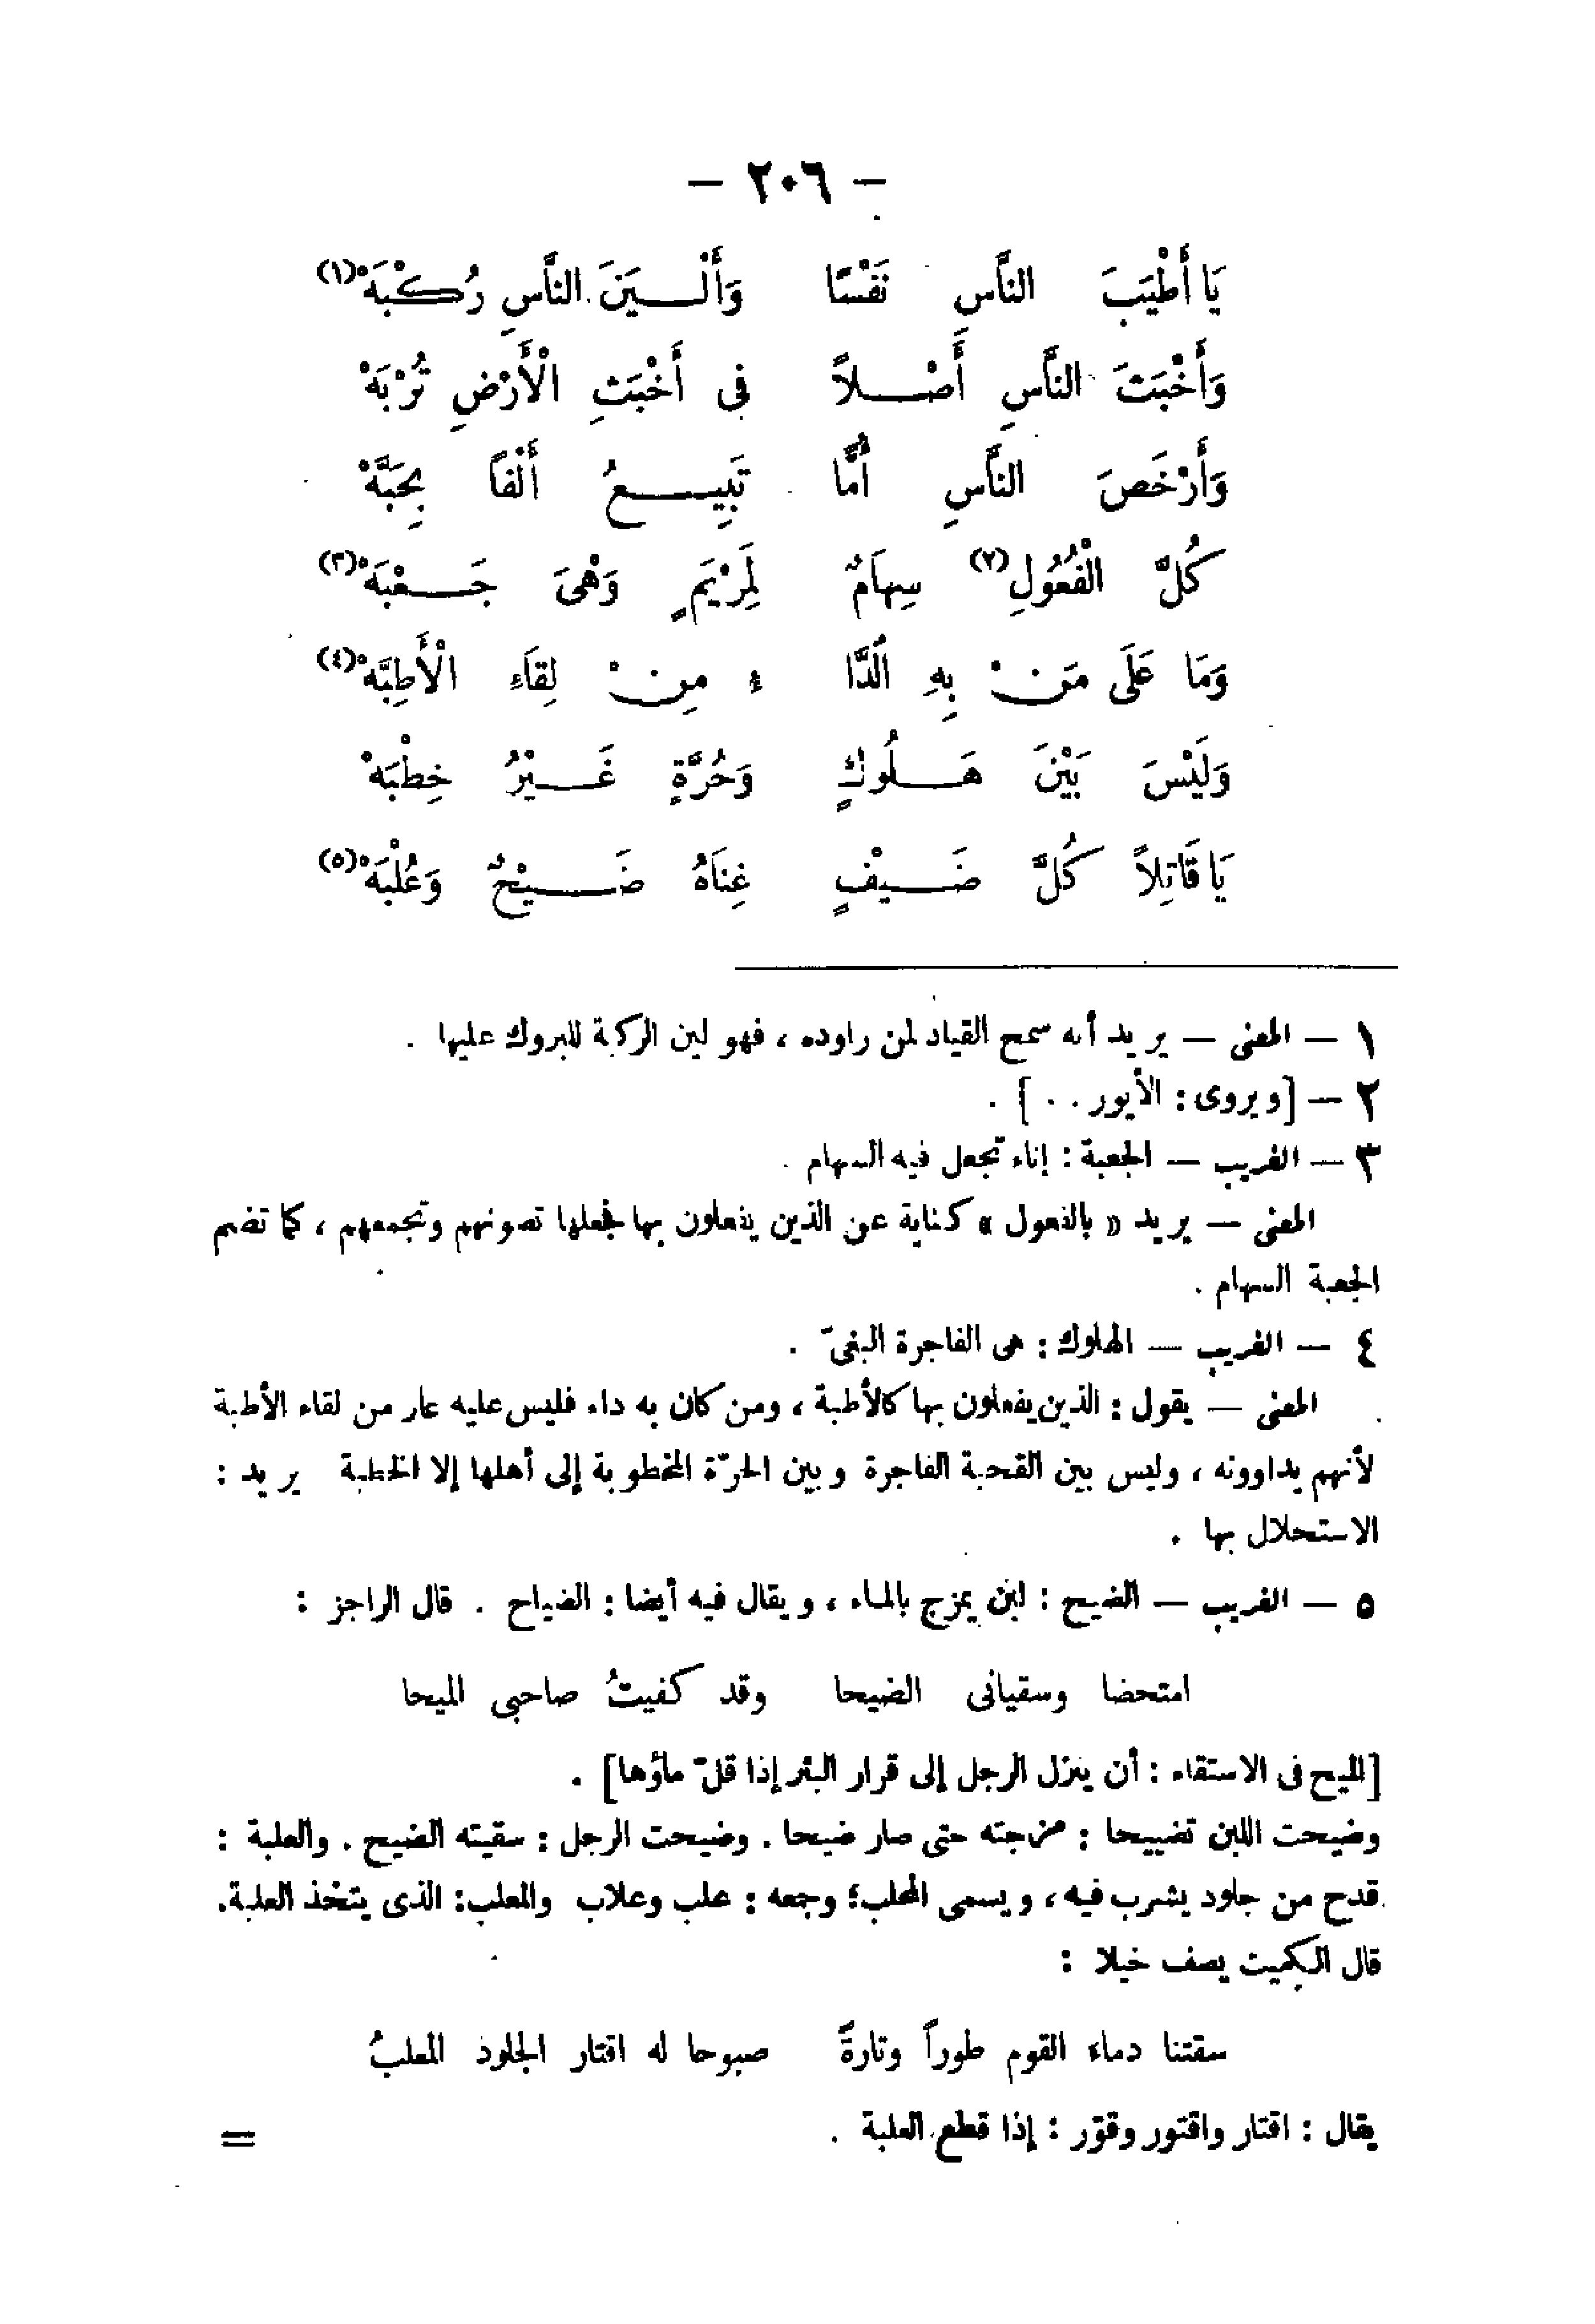 — ٢٠٦ —
يَا أَطْيَبَ النَّاسِ نَفْسًا وَأَلْـــيَنَ النَّاسِ رُكْبَهْ(١)
وَأَخْبَثَ النَّاسِ أَصْـــلاً فِى أَخْبَثِ الْأَرْضِ تُرْبَهْ
وَأَرْخَصَ النَّاسِ أُمًّا تَبِيـــعُ أَلْفاً بِحَبَّهْ
كُلُّ الْفُعُولِ(٢) سِهاَمٌ لِمَرْيَمٍ وَهْىَ جَـــعْبَهْ(٣)
وَمَا عَلَى مَنْ بِهِ الدَّا ءُ مِنْ لِقَاءِ الْأَطِبَّهْ(٤)
وَلَيْسَ بَيْنَ هَـــلُوكٍ وَحُرَّةٍ غَـــيْرُ خِطْبَهْ
يَا قَاتِلاً كُلَّ ضَـــيْفٍ غِنَاهُ ضَـــيْحٌ وَعُلْبَهْ(٥)
١ — المعنى — يريد أنه سمح القياد لمن راوده ، فهو لين الركبة للبروك عليها .
٢ — [ويروى : الأيور . . ] .
٣ — الغريب — الجعبة : إناء تجعل فيه السهام .
المعنى — يريد « بالفعول » كناية عن الذين يفعلون بها فجعلها تصونهم وتجمعهم ، كما تضم
الجعبة السهام .
٤ — الغريب — الهلوك : هى الفاجرة البغىّ .
المعنى — يقول : الذين يفعلون بها كالأطبة ، ومن كان به داء فليس عليه عار من لقاء الأطبة
لأنهم يداوونه ، وليس بين القحبة الفاجرة وبين الحرّة المخطوبة إلى أهلها إلا الخطبة يريد :
الاستحلال بها .
٥ — الغريب — الضيح : لبن يمزج بالماء ، ويقال فيه أيضا : الضياح . قال الراجز :
امتحضا وسقيانى الضيحا وقد كفيتُ صاحبى الميحا
[الميح فى الاستقاء : أن ينزل الرجل إلى قرار البئر إذا قلّ ماؤها] .
وضيحت اللبن تضييحا : مزجته حتى صار ضيحا . وضيحت الرجل : سقيته الضيح . والعلبة :
قدح من جلود يشرب فيه ، ويسمى المحلب ؛ وجمعه : علب وعلاب والمعلب : الذى يتخذ العلبة .
قال الكميت يصف خيلا :
سقتنا دماء القوم طوراً وتارةً صبوحا له اقتار الجلود المعلبُ
يقال : اقتار واقتور وقوّر : إذا قطع العلبة . =